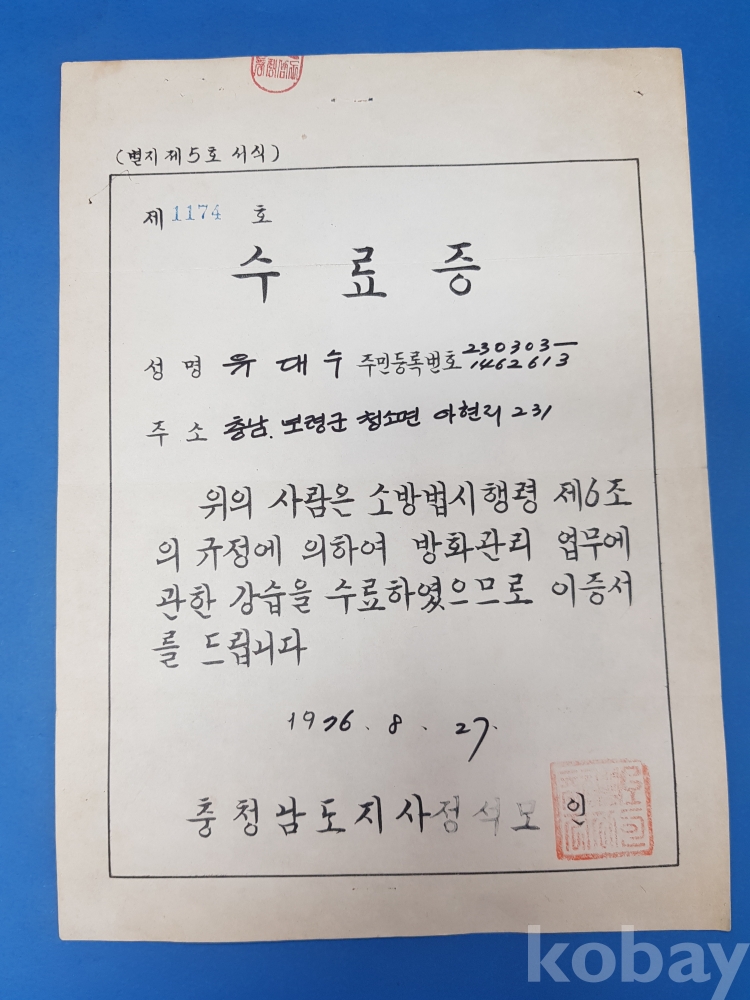 (별지 제5호 서식)
제 1174 호
수 료 증
성 명 유 대 수 주민등록번호 230303-
1462613
주 소 충남. 보령군 청소면 야현리 231
위의 사람은 소방법시행령 제6조
의 규정에 의하여 방화관리 업무에
관한 강습을 수료하였으므로 이증서
를 드립니다
1976. 8. 27.
충청남도지사 정석모 인
kobay